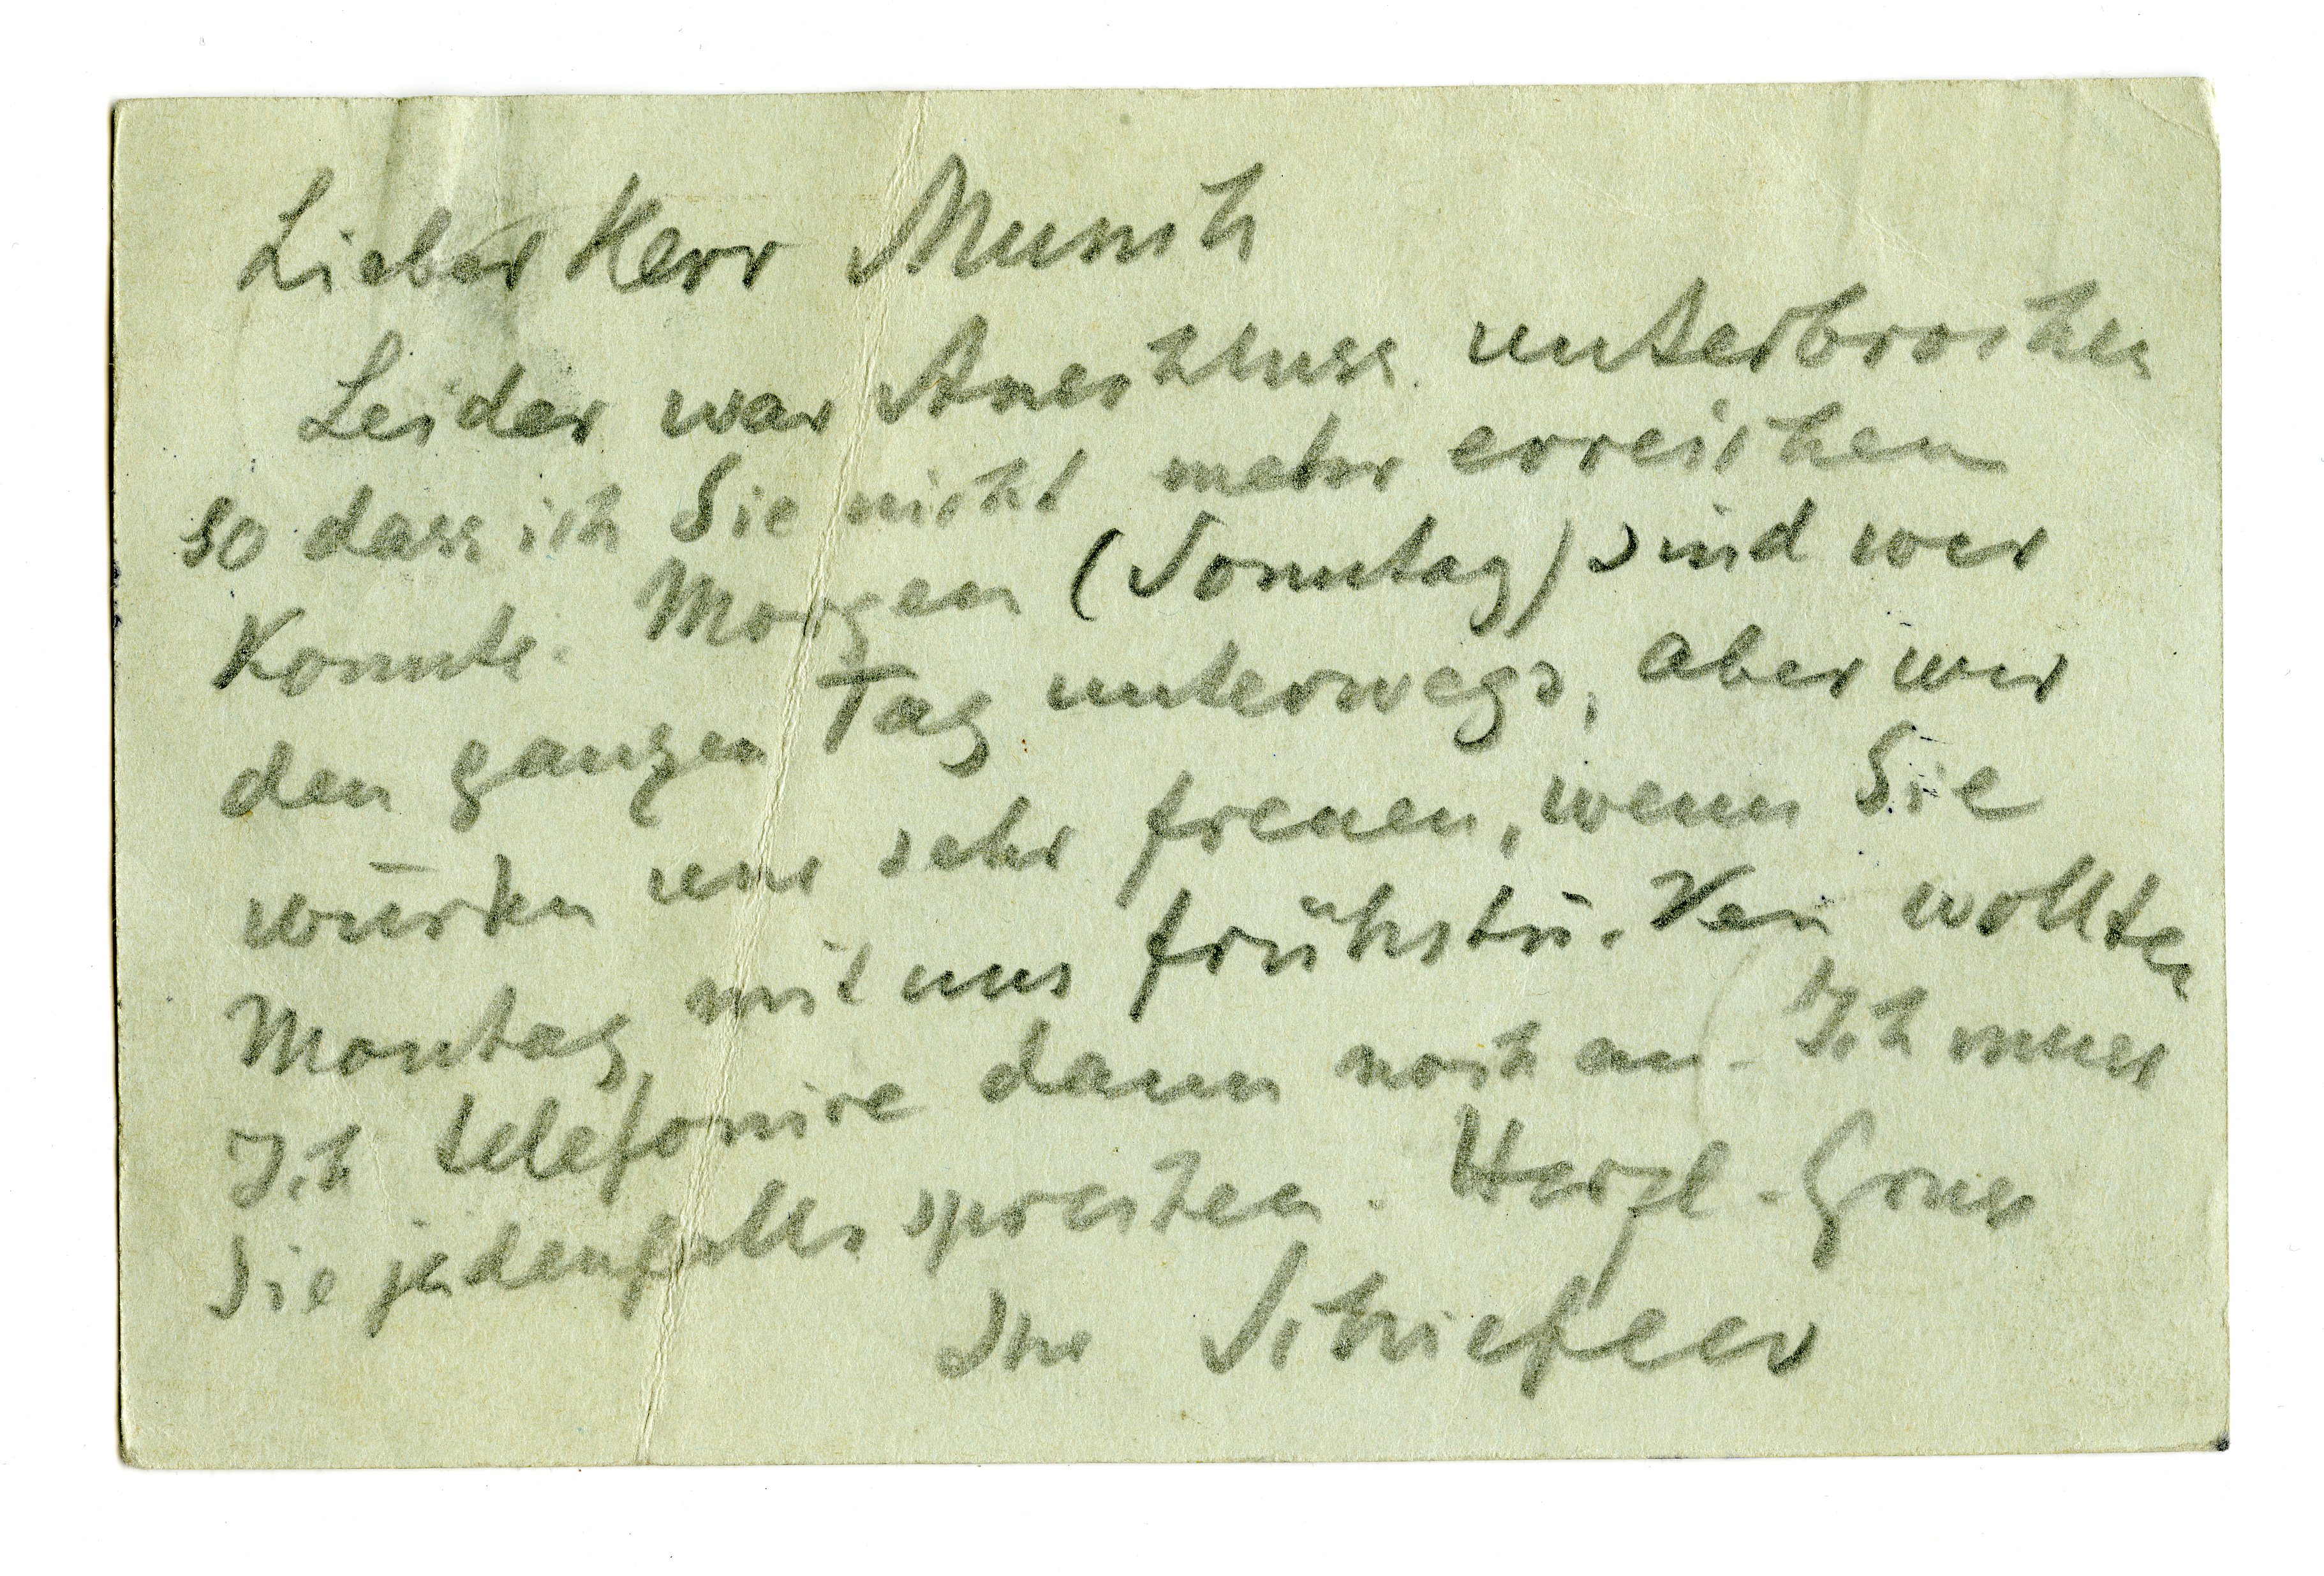 Lieber Herr Munch
Leider war Anschluss unterbrochen
so dass ich Sie nicht mehr erreichen
konnte. Morgen (Sonntag) sind wir
den ganzen Tag unterwegs, aber wir
würden uns sehr freuen, wenn Sie
Montag mit uns frühstü-ken wollten
Ich telefonire dann noch an. Ich muss
Sie jedenfalls sprechen. Herzl. Gruss
Ihr Schiefler